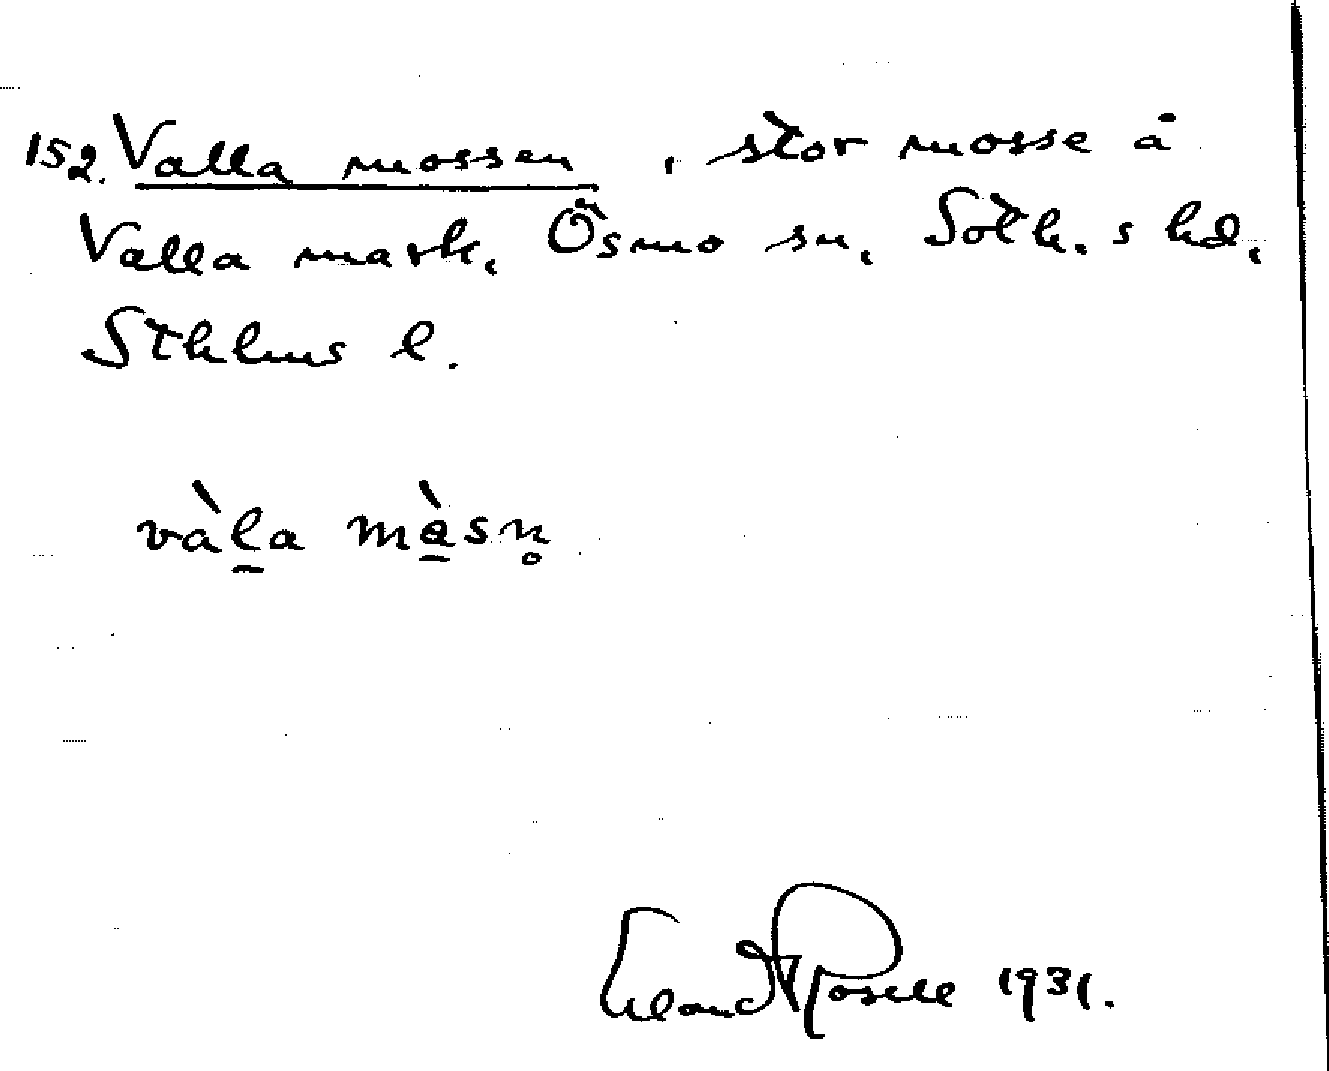 152. Valla mossen, stor mosse å
Valla mark, Ösmo sn, Soth. s hd,
Sthlms l.
vàl̠a mà̠sn̥
Erland Rosell 1931.